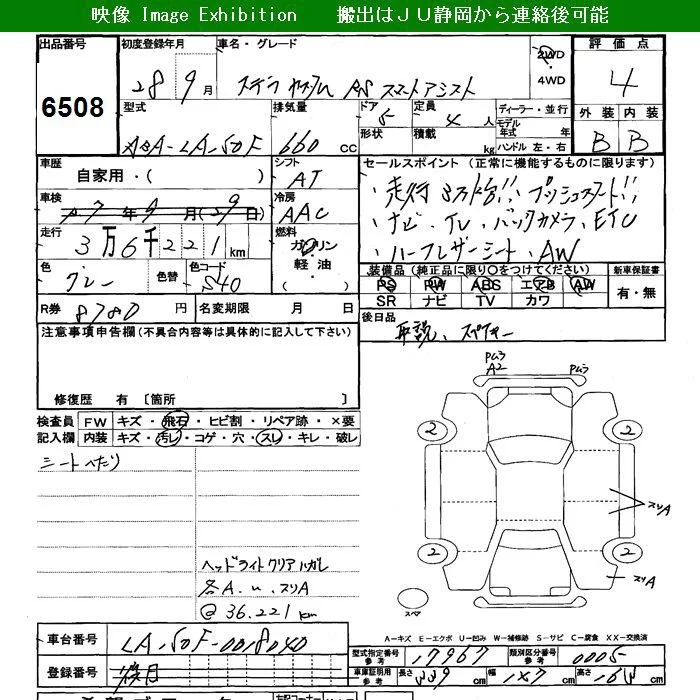 映像 Image Exhibition 搬出はＪＵ静岡から連絡後可能
出品番号 初度登録年月 車名・グレード 評価点
6508
28 9月 ステラ カスタム RS スマートアシスト 2WD 4WD 4
型式 排気量 ドア 定員 ディーラー・並行 外装 内装
DBA-LA150F 660 cc 5 4 人 モデル年式 年
形状 積載 kg ハンドル 左・右 B B
車歴 シフト セールスポイント（正常に機能するものに限ります）
自家用・( ) AT
・走行3万km台!!・プッシュスタート!!
車検 冷房
7年9月(29日) AAC
・ナビ・TV・バックカメラ・ETC
走行 燃料
3万6千221km ガソリン
軽油
・ハーフレザーシート・AW
色 色替 色コード 装備品（純正品に限り○をつけてください） 新車保証書
グレー S40 ( ) PS PW ABS エアB AW
SR ナビ TV カワ 有・無
R券 8780 円 名変期限 月 日 後日品
取説、スペアキー
注意事項申告欄(不具合内容等は具体的に記入して下さい)
修復歴 有〔箇所 〕
検査員 FW キズ・飛石・ヒビ割・リペア跡・×要
記入欄 内装 キズ・汚レ・コゲ・穴・スレ・キレ・破レ
シートへたり
ヘッドライトクリアハガレ
各A.u.スリA
@36.221km
PLろ PLろ
A2
2 2
スリA
2 2
スリA
スペア
A－キズ E－エクボ U－凹み W－補修跡 S－サビ C－腐食 XX－交換済
車台番号 LA150F-0018040 型式指定番号 参考 17967 類別区分番号 参考 0005
登録番号 後日 車庫証明用 参考 長さ 339 cm 幅 147 cm 高さ 164 cm